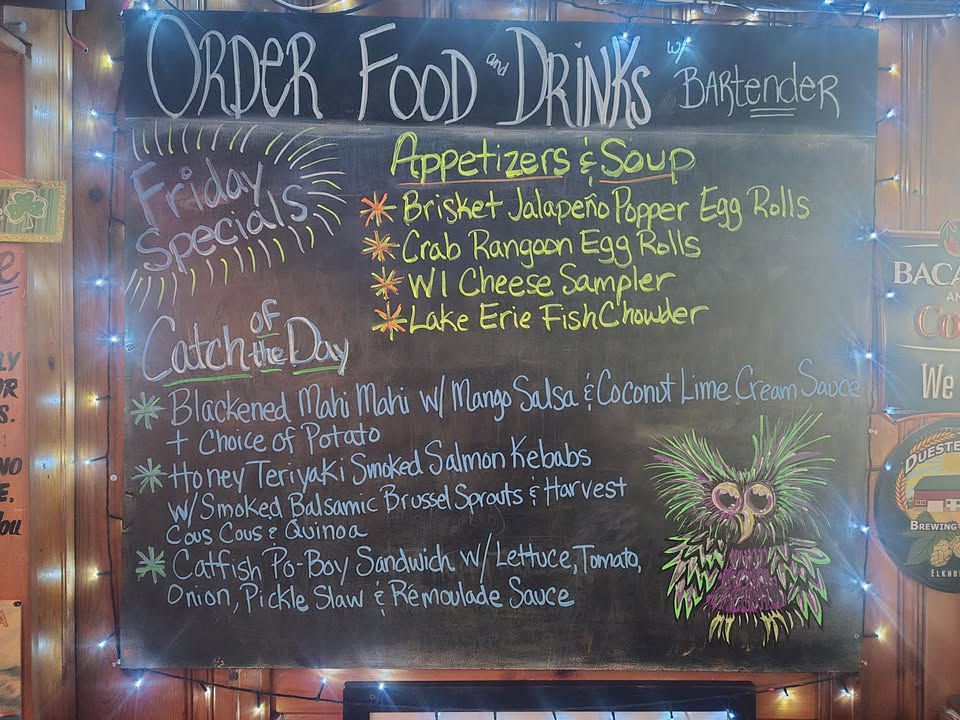 ORDER FOOD and DRINKS w/ BARtENDER
Friday
Specials
Appetizers & Soup
Brisket Jalapeño Popper Egg Rolls
Crab Rangoon Egg Rolls
WI Cheese Sampler
Lake Erie Fish Chowder
Catch of the Day
Blackened Mahi Mahi w/ Mango Salsa & Coconut Lime Cream Sauce
+ Choice of Potato
Honey Teriyaki Smoked Salmon Kebabs
w/ Smoked Balsamic Brussel Sprouts & Harvest
Cous Cous & Quinoa
Catfish Po-Boy Sandwich w/ Lettuce, Tomato,
Onion, Pickle Slaw & Remoulade Sauce
BACA
AN
Co
We
DUESTE
BREWING
ELKHO
LY
OR
S.
NO
E,
You